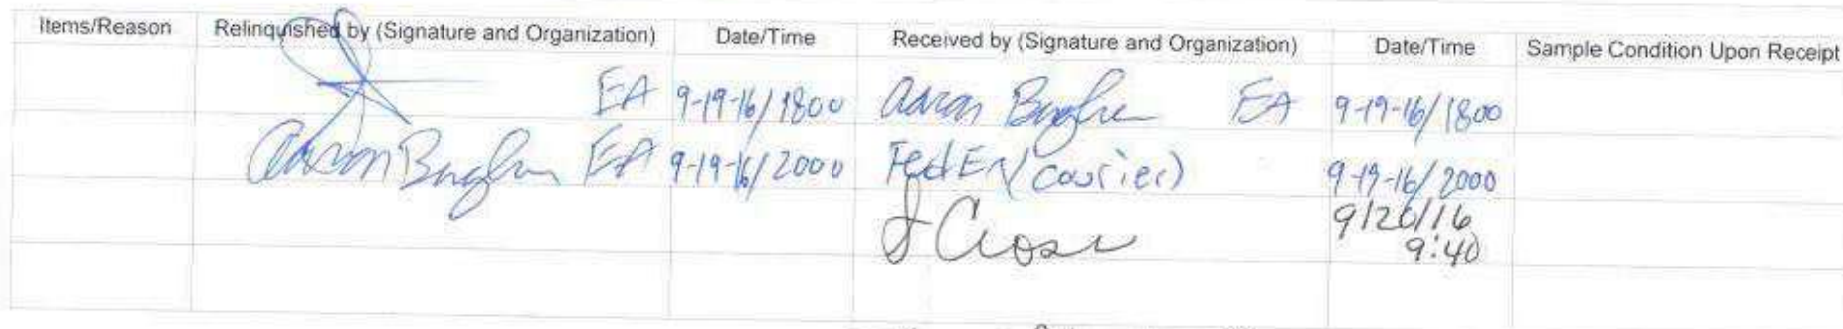 Items/Reason Relinquished by (Signature and Organization) Date/Time Received by (Signature and Organization) Date/Time Sample Condition Upon Receipt
EA 9-19-16/1800 Aaron EA 9-19-16/1800
Aaron EA 9-19-16/2000 FedEx (courier) 9-19-16/2000
9/20/16
9:40